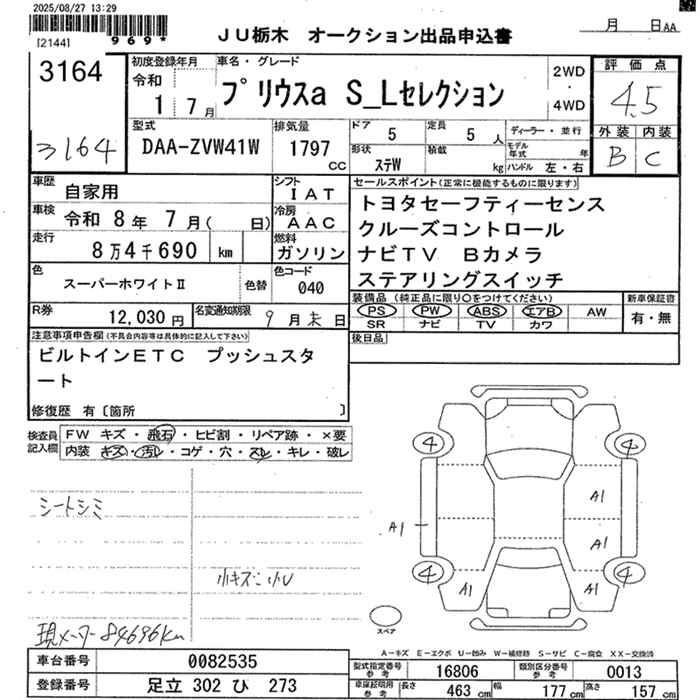 2025/08/27 13:29
[2144]
969*
JU栃木 オークション出品申込書
月 日 AA
3164
3164
初度登録年月
令和
1 7月
車名・グレード
プリウスa S_Lセレクション
2WD
・
4WD
評価点
4.5
外装 内装
B C
型式
DAA-ZVW41W
排気量
1797
cc
ドア
5
定員
5 人
形状
ステW
積載
kg
ディーラー・並行
モデル年式 年
ハンドル 左・右
車歴 自家用
シフト
IAT
車検 令和 8年 7月( 日)
冷房
AAC
走行
8万4千690 km
燃料
ガソリン
色
スーパーホワイトⅡ
色替
色コード
040
R券
12,030円
名変通知期限
9月末日
セールスポイント(正常に機能するものに限ります)
トヨタセーフティーセンス
クルーズコントロール
ナビTV Bカメラ
ステアリングスイッチ
装備品(純正品に限り○をつけてください)
PS PW ABS エアB AW
SR ナビ TV カワ
新車保証書
有・無
後日品
注意事項申告欄(不具合内容等は具体的に記入して下さい)
ビルトインETC プッシュスタ
ート
修復歴 有〔箇所 〕
検査員記入欄
FW キズ・飛石・ヒビ割・リペア跡・×要
内装 キズ・汚レ・コゲ・穴・スレ・キレ・破レ
シートシミ
小キズ小U
現メーター84696km
4 4
A1
A1
A1
4 4
A1 A1
スペア
A-キズ E-エクボ U-凹み W-補修跡 S-サビ C-腐食 XX-交換済
車台番号 0082535
登録番号 足立 302 ひ 273
型式指定番号 参考 16806
類別区分番号 参考 0013
車庫証明用 参考 長さ 463 cm 幅 177 cm 高さ 157 cm